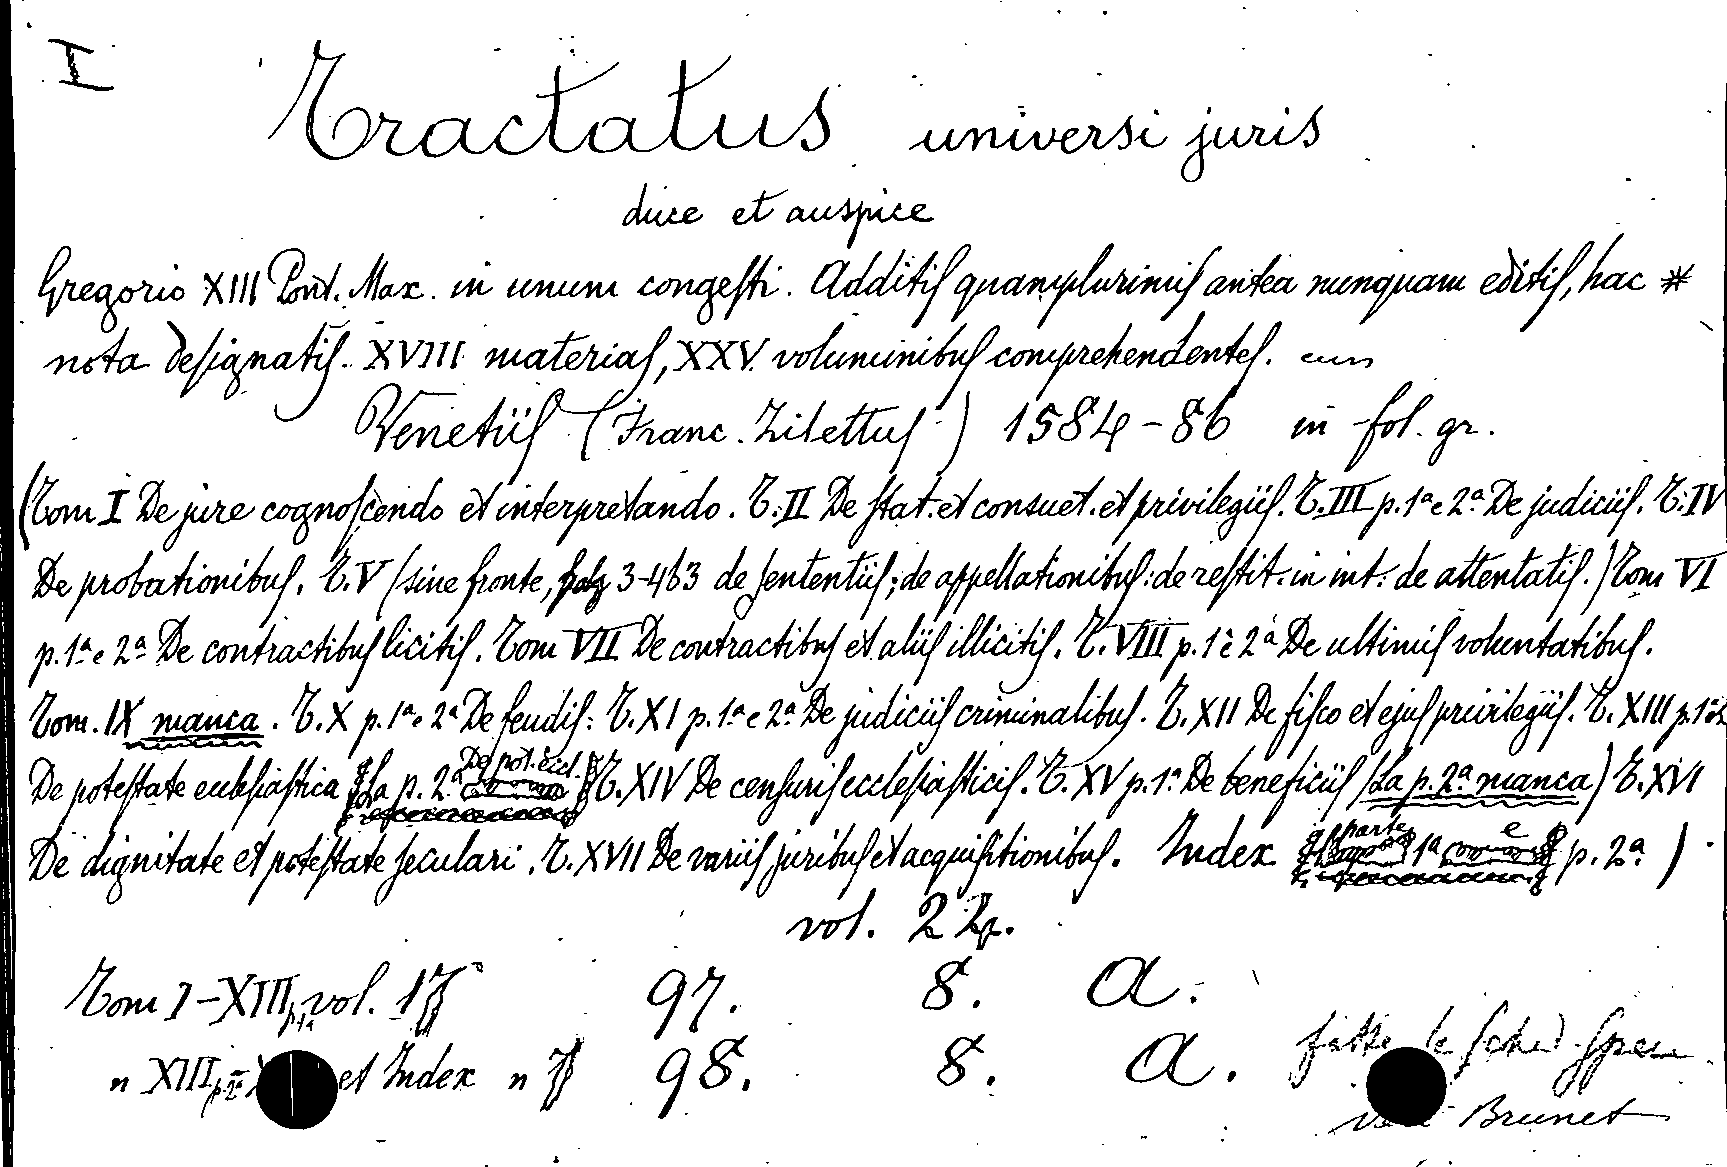 I
Tractatus universi juris
duce et auspice
Gregorio XIII Pont. Max. in unum congesti. Additis quamplurimis antea nunquam editis, hac *
nota designatis. XVIII materias, XXV. voluminibus comprehendentes. cum
Venetiis (Franc. Zilettus) 1584-86 in fol. gr.
(Tom I De jure cognoscendo et interpretando. T. II De stat. et consuet. et privilegiis. T. III p. 1ª e 2ª De judiciis. T. IV
De probationibus. T. V (sine fronte, 3-463 de sententiis; de appellationibus: de restit. in int: de attentatis.) Tom VI
p. 1ª e 2ª De contractibus licitis. Tom VII De contractibus et aliis illicitis. T. VIII p. 1 e 2ª De ultimis voluntatibus.
Tom. IX manca. T. X p. 1ª e 2ª De feudis: T. XI p. 1ª e 2ª De judiciis criminalibus. T. XII De fisco et ejus privilegiis. T. XIII p. 1ª
De potestate ecclesiastica La p. 2ª De pot. eccl. T. XIV De censuris ecclesiasticis. T. XV p. 1ª De beneficiis (La p. 2ª manca) T. XVI
De dignitate et potestate seculari. T. XVII De variis juribus et acquisitionibus. Index parte 1ª e p. 2ª)
vol. 22.
Tom I-XIII p. 1ª vol. 97. 8. A.
" XIII p. 2ª et Index " 98. 8. A.
fatte le sched
Brunet